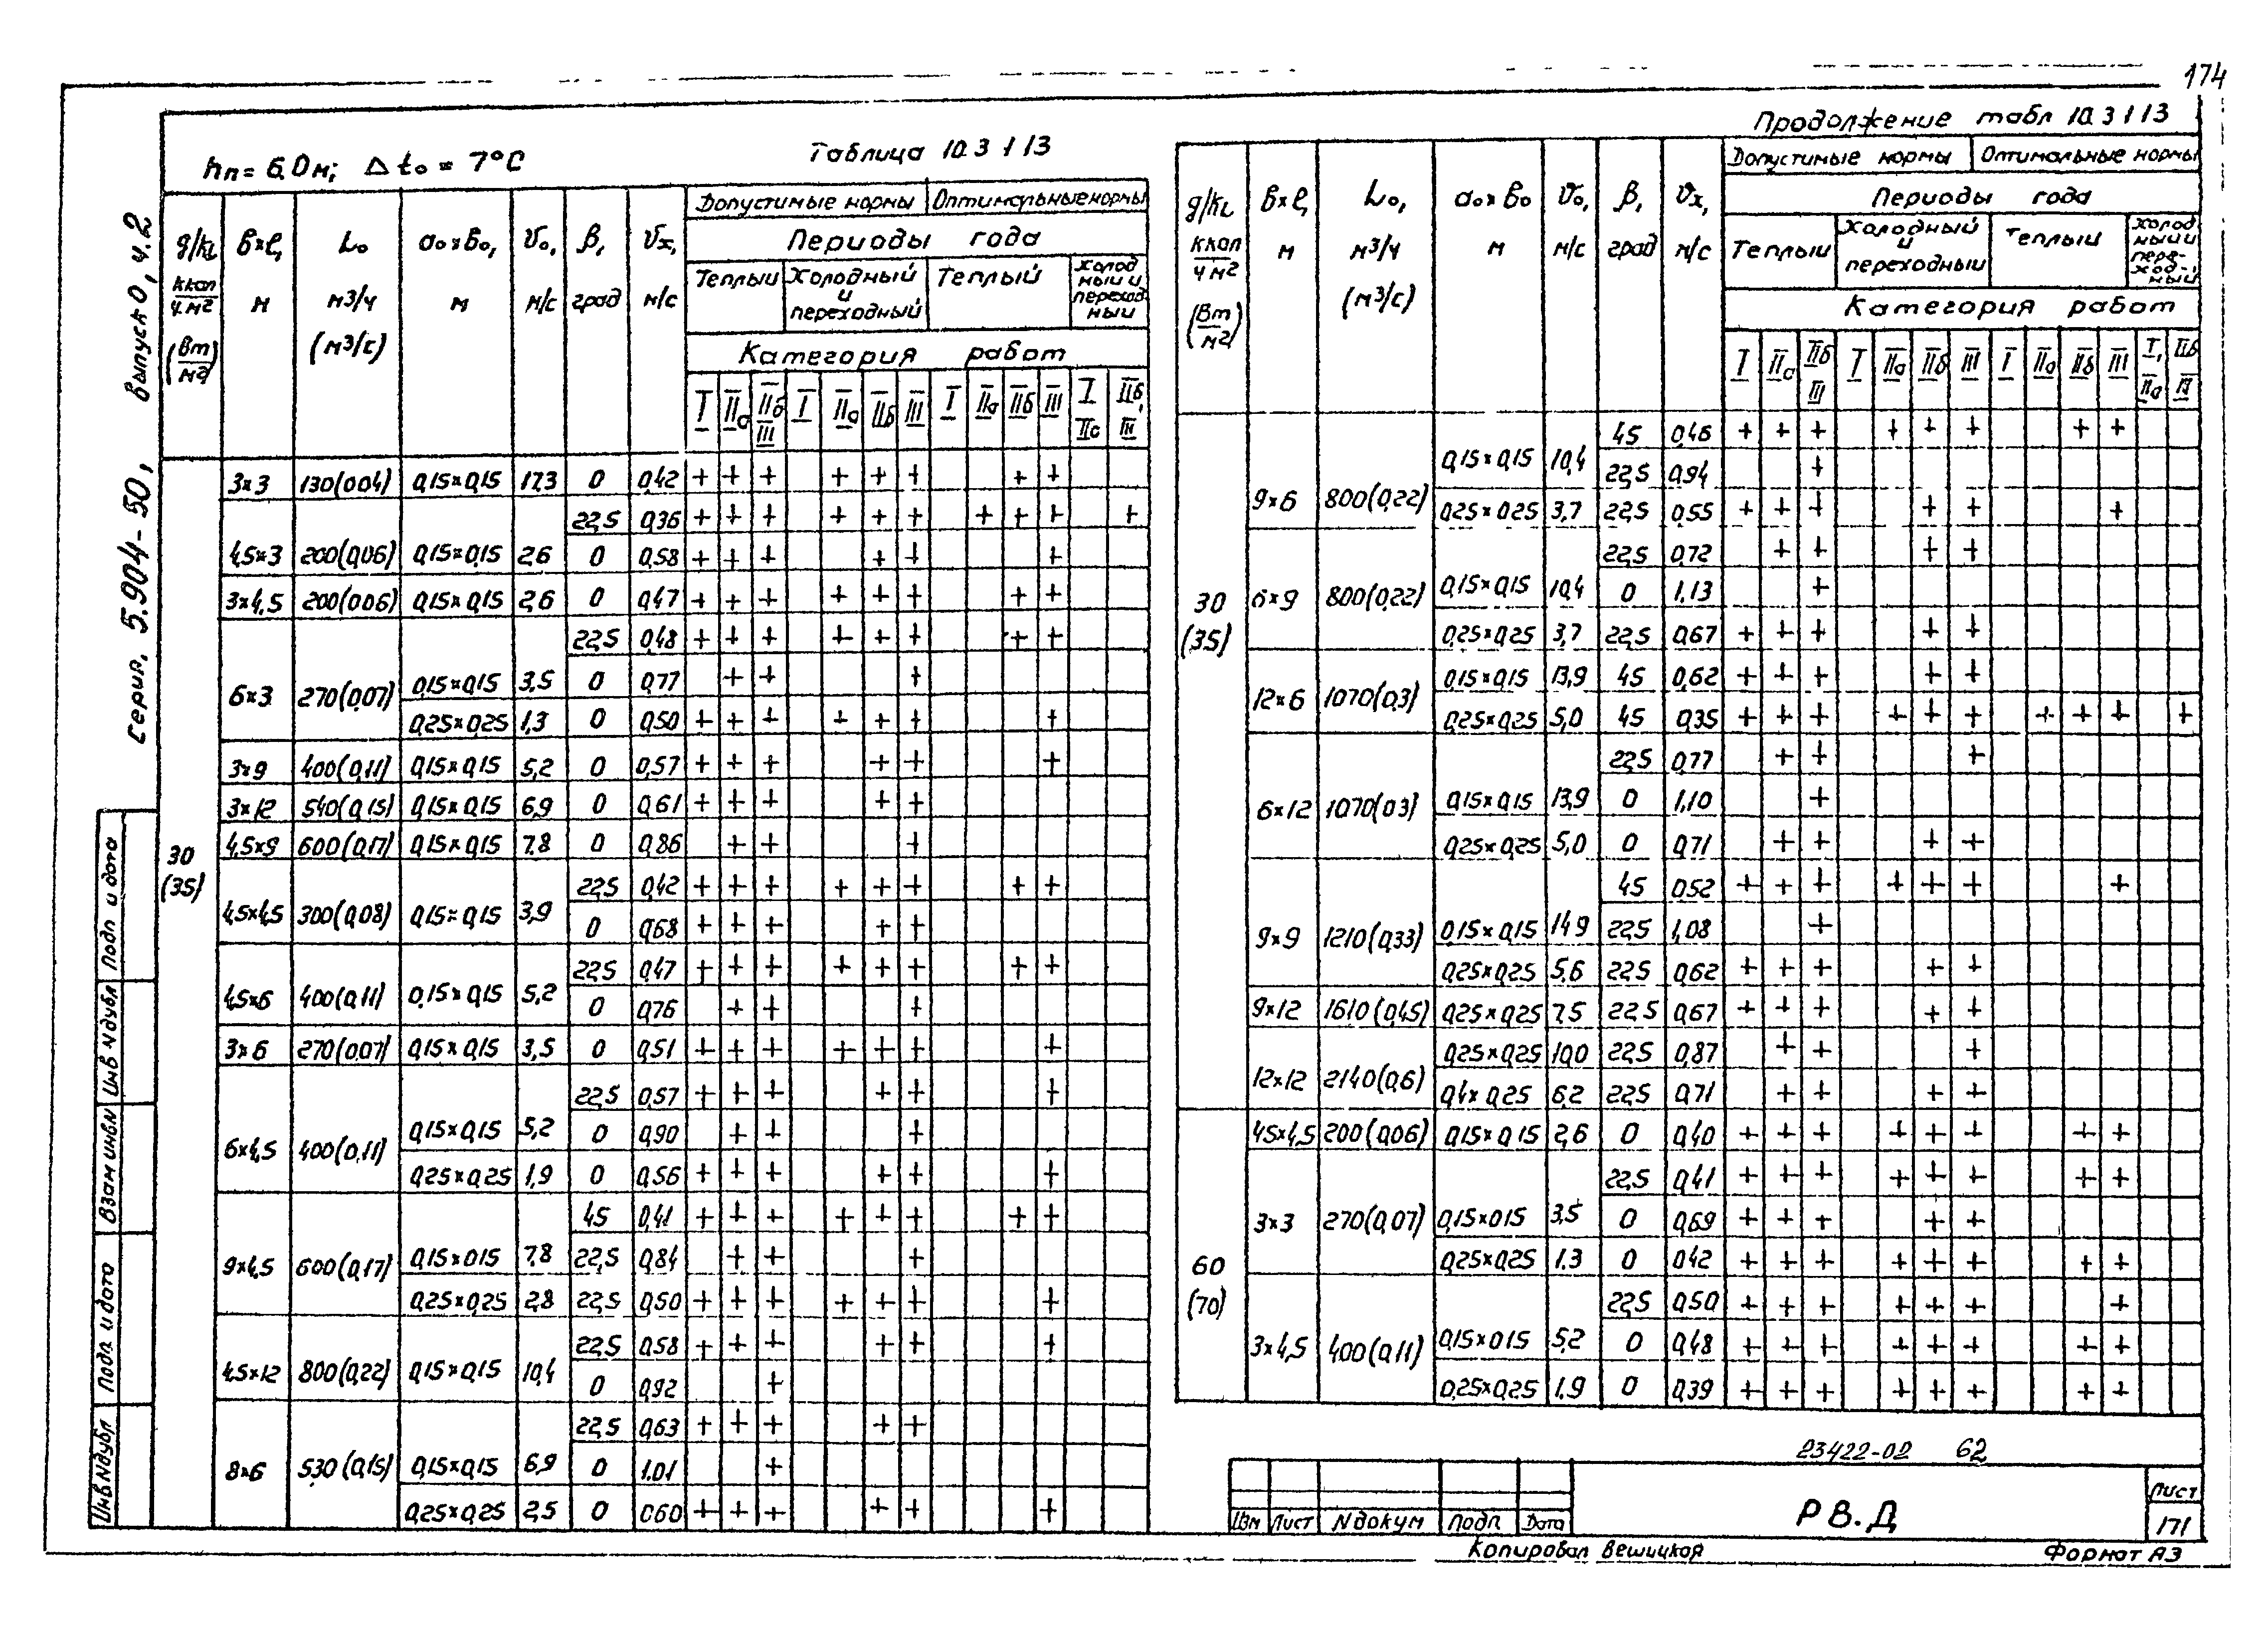 174
серия 5.904-50, выпуск 0, ч.2
hп = 6,0 м; Δt₀ = 7°C
Таблица 10.3.1.13
g/kL ккал/ч.м² (Вт/м²) | в×l, м | L₀ м³/ч (м³/с) | a₀×в₀, м | υ₀, м/с | β, град | υx, м/с
Допустимые нормы | Оптимальные нормы
Периоды года
Теплый | Холодный и переходный | Теплый | Холодный и переходный
Категория работ
I | IIа | IIб III | I | IIа | IIб | III | I | IIа | IIб | III | I IIа | IIб, III
30 (35)
3×3 | 130(0,04) | 0,15×0,15 | 17,3 | 0 | 0,42 | + + + + + + + +
22,5 | 0,36 | + + + + + + + + + +
4,5×3 | 200(0,06) | 0,15×0,15 | 2,6 | 0 | 0,58 | + + + + + +
3×4,5 | 200(0,06) | 0,15×0,15 | 2,6 | 0 | 0,47 | + + + + + + + +
22,5 | 0,48 | + + + + + + + +
6×3 | 270(0,07) | 0,15×0,15 | 3,5 | 0 | 0,77 | + + +
0,25×0,25 | 1,3 | 0 | 0,50 | + + + + + + +
3×9 | 400(0,11) | 0,15×0,15 | 5,2 | 0 | 0,57 | + + + + + +
3×12 | 540(0,15) | 0,15×0,15 | 6,9 | 0 | 0,61 | + + + + +
4,5×9 | 600(0,17) | 0,15×0,15 | 7,8 | 0 | 0,86 | + + +
22,5 | 0,42 | + + + + + + + +
4,5×4,5 | 300(0,08) | 0,15×0,15 | 3,9 | 0 | 0,68 | + + + + +
22,5 | 0,47 | + + + + + + + +
4,5×6 | 400(0,11) | 0,15×0,15 | 5,2 | 0 | 0,76 | + + +
3×6 | 270(0,07) | 0,15×0,15 | 3,5 | 0 | 0,51 | + + + + + + +
22,5 | 0,57 | + + + + + +
6×4,5 | 400(0,11) | 0,15×0,15 | 5,2 | 0 | 0,90 | + + +
0,25×0,25 | 1,9 | 0 | 0,56 | + + + + + +
45 | 0,41 | + + + + + + + +
9×4,5 | 600(0,17) | 0,15×0,15 | 7,8 | 22,5 | 0,84 | + + +
0,25×0,25 | 2,8 | 22,5 | 0,50 | + + + + + + +
22,5 | 0,58 | + + + + + +
4,5×12 | 800(0,22) | 0,15×0,15 | 10,4 | 0 | 0,92 | +
22,5 | 0,63 | + + + + +
8×6 | 530(0,15) | 0,15×0,15 | 6,9 | 0 | 1,01 | +
0,25×0,25 | 2,5 | 0 | 0,60 | + + + + + +
Продолжение табл 10.3.1.13
g/kL ккал/ч м² (Вт/м²) | в×l, м | L₀, м³/ч (м³/с) | a₀×в₀ м | υ₀, м/с | β, град | υx, м/с
Допустимые нормы | Оптимальные нормы
Периоды года
Теплый | Холодный и переходный | Теплый | Холодный и переходный
Категория работ
I | IIа | IIб III | I | IIа | IIб | III | I | IIа | IIб | III | I, IIа | IIб III
30 (35)
45 | 0,46 | + + + + + + + +
9×6 | 800(0,22) | 0,15×0,15 | 10,4 | 22,5 | 0,94 | +
0,25×0,25 | 3,7 | 22,5 | 0,55 | + + + + + +
22,5 | 0,72 | + + + +
6×9 | 800(0,22) | 0,15×0,15 | 10,4 | 0 | 1,13 | +
0,25×0,25 | 3,7 | 22,5 | 0,67 | + + + + +
12×6 | 1070(0,3) | 0,15×0,15 | 13,9 | 45 | 0,62 | + + + + +
0,25×0,25 | 5,0 | 45 | 0,35 | + + + + + + + + + +
22,5 | 0,77 | + + +
6×12 | 1070(0,3) | 0,15×0,15 | 13,9 | 0 | 1,10 | +
0,25×0,25 | 5,0 | 0 | 0,71 | + + + +
45 | 0,52 | + + + + + + +
9×9 | 1210(0,33) | 0,15×0,15 | 14,9 | 22,5 | 1,08 | +
0,25×0,25 | 5,6 | 22,5 | 0,62 | + + + + +
9×12 | 1610(0,45) | 0,25×0,25 | 7,5 | 22,5 | 0,67 | + + + + +
12×12 | 2140(0,6) | 0,25×0,25 | 10,0 | 22,5 | 0,87 | + + +
0,4×0,25 | 6,2 | 22,5 | 0,71 | + + + +
60 (70)
4,5×4,5 | 200(0,06) | 0,15×0,15 | 2,6 | 0 | 0,40 | + + + + + + + +
22,5 | 0,41 | + + + + + + + +
3×3 | 270(0,07) | 0,15×0,15 | 3,5 | 0 | 0,69 | + + + + +
0,25×0,25 | 1,3 | 0 | 0,42 | + + + + + + + +
22,5 | 0,50 | + + + + + + +
3×4,5 | 400(0,11) | 0,15×0,15 | 5,2 | 0 | 0,48 | + + + + + + + +
0,25×0,25 | 1,9 | 0 | 0,39 | + + + + + + + +
Инв N дубл | Подп. и дата | Взам инв N | Инв N дубл | Подп и дата
23422-02 62
Изм | Лист | N докум | Подп | Дата
РВ.Д
Лист
171
Копировал Вешицкая
Формат А3